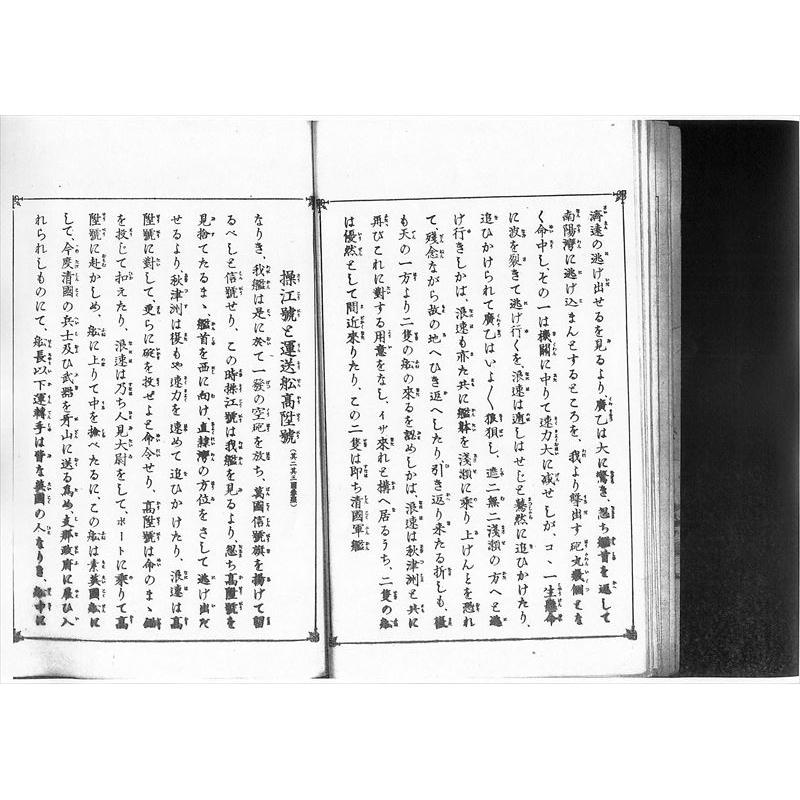 濟遠の逃げ出せるを見るより、廣乙は大に驚き、忽ち艦首を返して
南陽灣に逃げ込まんとするところを、我より擊出す砲丸幾個とな
く命中し、その一は機關に中りて速力大に減せしが、コヽ一生懸命
に波を裂きて逃げ行くを、浪速は遁しはせじと驀然に追ひかけたり、
追ひかけられて廣乙はいよ〱狼狽し、遮二無二淺瀬の方へと逃
げ行きしかば、浪速も亦た共に艦躰を淺瀬に乘り上げんとを恐れ
て殘念ながら故の地へひき返へしたり、引き返り來たる折しも、
も天の一方より二隻の舩の來るを認めしかば、浪速は秋津洲と共に
再びこれに對する用意をなし、イザ來れと構へ居るうち、二隻の舩
は優然として間近來りたり、この二隻は即ち清國軍艦
操江號と運送舩高陞號
なりき、我艦は是に於て一發の空砲を放ち、萬國信號旗を揚げて留
るべしと信號せり、この時操江號は我艦を見るより、忽ち高陞號を
見捨てたるまヽ艦首を西に向け、直隷灣の方位をさして逃げ出だ
せるより、秋津洲は後もや速力を速めて追ひかけたり、浪速は高
陞號に對して、更らに碇を投せよと命令せり、高陞號は命のまヽ
を投じて扣えたり、浪速は乃ち人見大尉をして、ボートに乘りて高
陞號に赴かしめ、舩に上りて中を撿べたるに、この舩は素英國舩に
して、今度清國の兵士及ひ武器を牙山に送る爲め、支那政府に雇ひ入
れられしものにて、舩長以下運轉手は皆な英國の人なりき、舩中に